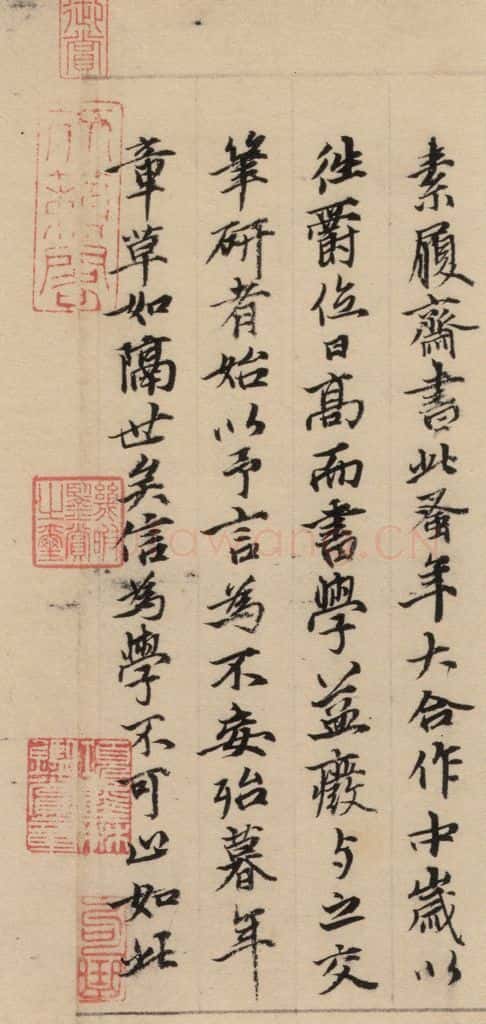 素履齋書此蚤年大合作中嵗以
徃爵位日髙而書學益癈与之交
筆研者始以予言為不妄殆暮年
章草如隔世矣信為學不可止如此
御賞